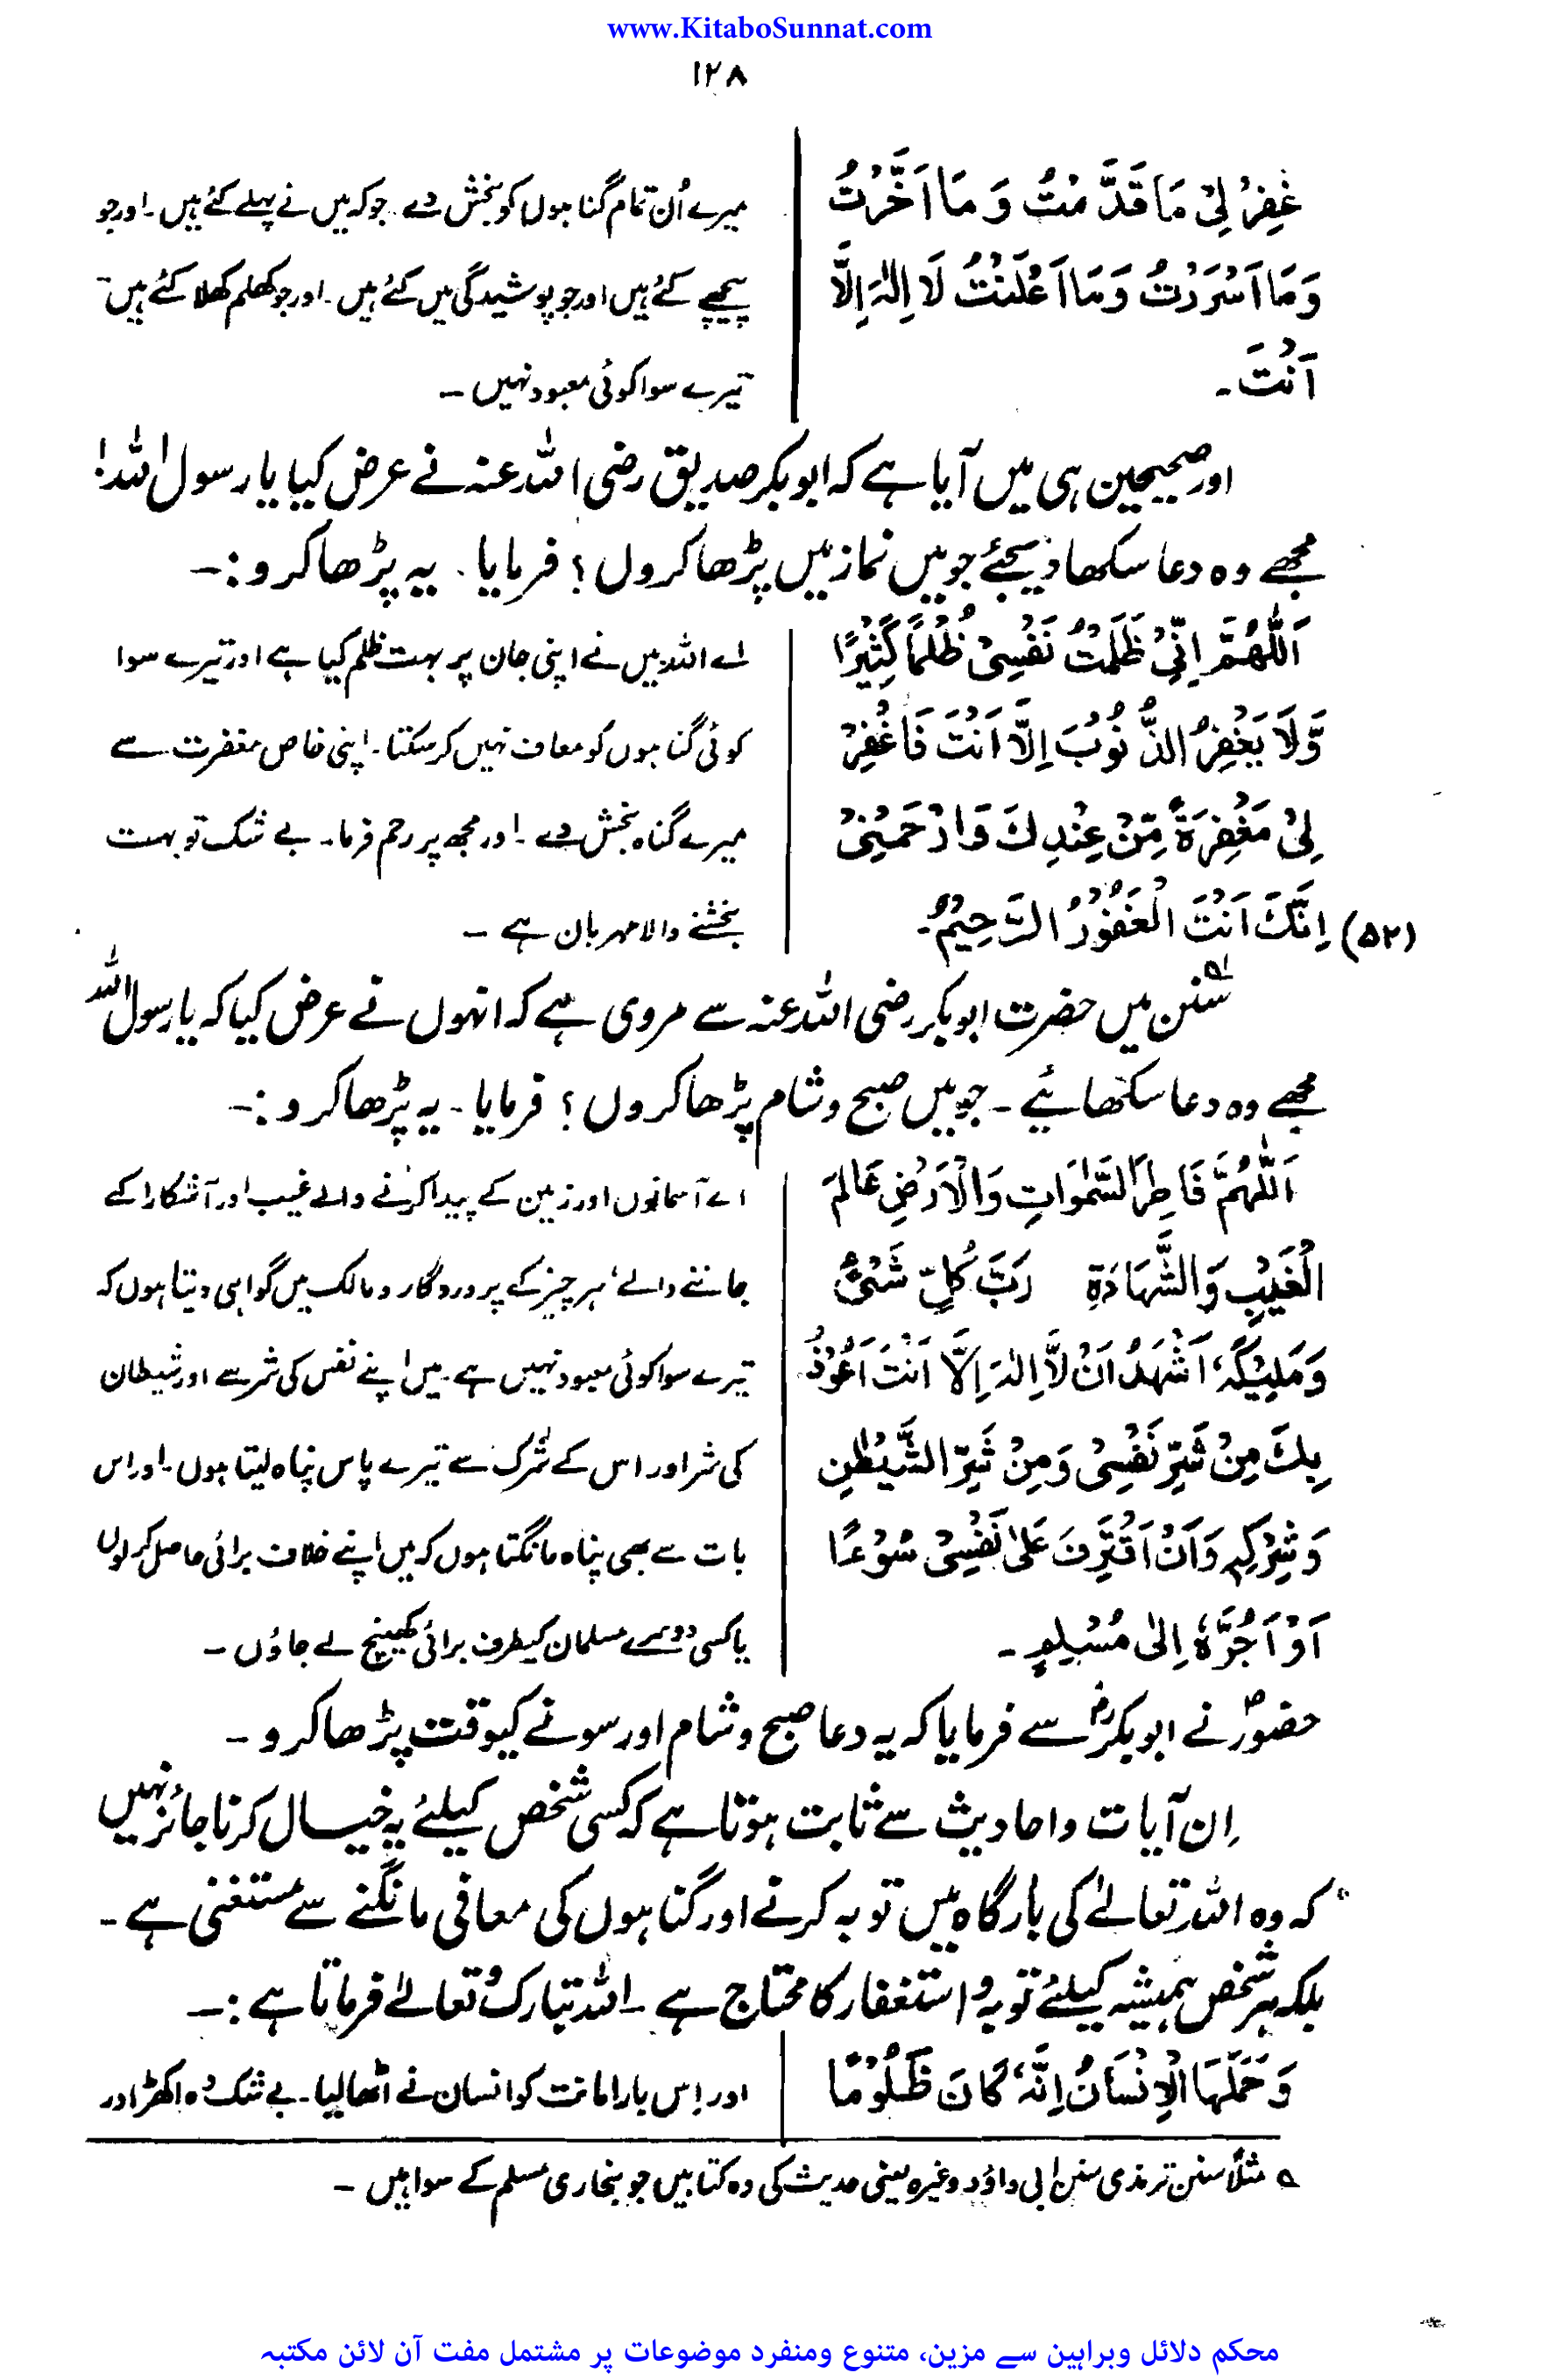 www.KitaboSunnat.com
۱۲۸
غْفِرْ لِیْ مَا قَدَّمْتُ وَ مَا اَخَّرْتُ
وَمَا اَسْرَرْتُ وَمَا اَعْلَنْتُ لَا اِلٰہَ اِلَّا
اَنْتَ۔
میرے اُن تمام گناہوں کو بخش دے جو کہ میں نے پہلے کئے ہیں۔ اور جو
پیچھے کئے ہیں اور جو پوشیدگی میں کئے ہیں۔ اور جو کھلم کھلا کئے ہیں۔
تیرے سوا کوئی معبود نہیں۔
اور صحیحین ہی میں آیا ہے کہ ابو بکر صدیق رضی اللہ عنہ نے عرض کیا یا رسول اللہ!
مجھے وہ دعا سکھا دیجئے جو میں نماز میں پڑھا کروں؟ فرمایا۔ یہ پڑھا کرو:۔
اَللّٰھُمَّ اِنِّیْ ظَلَمْتُ نَفْسِیْ ظُلْمًا کَثِیْرًا
وَّلَا یَغْفِرُ الذُّنُوْبَ اِلَّا اَنْتَ فَاغْفِرْ
لِیْ مَغْفِرَۃً مِّنْ عِنْدِكَ وَارْحَمْنِیْ
(۵۲) اِنَّكَ اَنْتَ الْغَفُوْرُ الرَّحِیْمُ۔
اے اللہ میں نے اپنی جان پر بہت ظلم کیا ہے اور تیرے سوا
کوئی گناہوں کو معاف نہیں کر سکتا۔ اپنی خاص مغفرت سے
میرے گناہ بخش دے۔ اور مجھ پر رحم فرما۔ بے شک تو بہت
بخشنے والا مہربان ہے۔
سنن میں حضرت ابو بکر رضی اللہ عنہ سے مروی ہے کہ انہوں نے عرض کیا کہ یا رسول اللہ
مجھے وہ دعا سکھائیے۔ جو میں صبح و شام پڑھا کروں؟ فرمایا۔ یہ پڑھا کرو:۔
اَللّٰھُمَّ فَاطِرَ السَّمٰوَاتِ وَالْاَرْضِ عَالِمَ
الْغَیْبِ وَالشَّھَادَۃِ رَبَّ کُلِّ شَیْءٍ
وَمَلِیْکَہٗ اَشْھَدُ اَنْ لَّا اِلٰہَ اِلَّا اَنْتَ اَعُوْذُ
بِكَ مِنْ شَرِّ نَفْسِیْ وَمِنْ شَرِّ الشَّیْطٰنِ
وَشِرْکِہٖ وَاَنْ اَقْتَرِفَ عَلٰی نَفْسِیْ سُوْءًا
اَوْ اَجُرَّہٗ اِلٰی مُسْلِمٍ۔
اے آسمانوں اور زمین کے پیدا کرنے والے غیب اور آشکارا کے
جاننے والے، ہر چیز کے پروردگار و مالک میں گواہی دیتا ہوں کہ
تیرے سوا کوئی معبود نہیں ہے۔ میں اپنے نفس کی شر سے اور شیطان
کی شر اور اس کے شرک سے تیرے پاس پناہ لیتا ہوں۔ اور اس
بات سے بھی پناہ مانگتا ہوں کہ میں اپنے خلاف برائی حاصل کر لوں
یا کسی دوسرے مسلمان کیطرف برائی کھینچ لے جاؤں۔
حضورؐ نے ابو بکرؓ سے فرمایا کہ یہ دعا صبح و شام اور سونے کیوقت پڑھا کرو۔
اِن آیات و احادیث سے ثابت ہوتا ہے کہ کسی شخص کیلئے یہ خیال کرنا جائز نہیں
کہ وہ اللہ تعالےٰ کی بارگاہ میں توبہ کرنے اور گناہوں کی معافی مانگنے سے مستغنی ہے۔
بلکہ ہر شخص ہمیشہ کیلئے توبہ و استغفار کا محتاج ہے۔ اللہ تبارک و تعالےٰ فرماتا ہے:۔
وَحَمَلَھَا الْاِنْسَانُ اِنَّہٗ کَانَ ظَلُوْمًا
اور اِس بار امانت کو انسان نے اٹھا لیا۔ بے شک وہ اکھڑ اور
ہ مثلاً سنن ترمذی سنن ابی داؤد وغیرہ یعنی حدیث کی وہ کتابیں جو بخاری مسلم کے سوا ہیں۔
محکم دلائل وبراہین سے مزین، متنوع ومنفرد موضوعات پر مشتمل مفت آن لائن مکتبہ